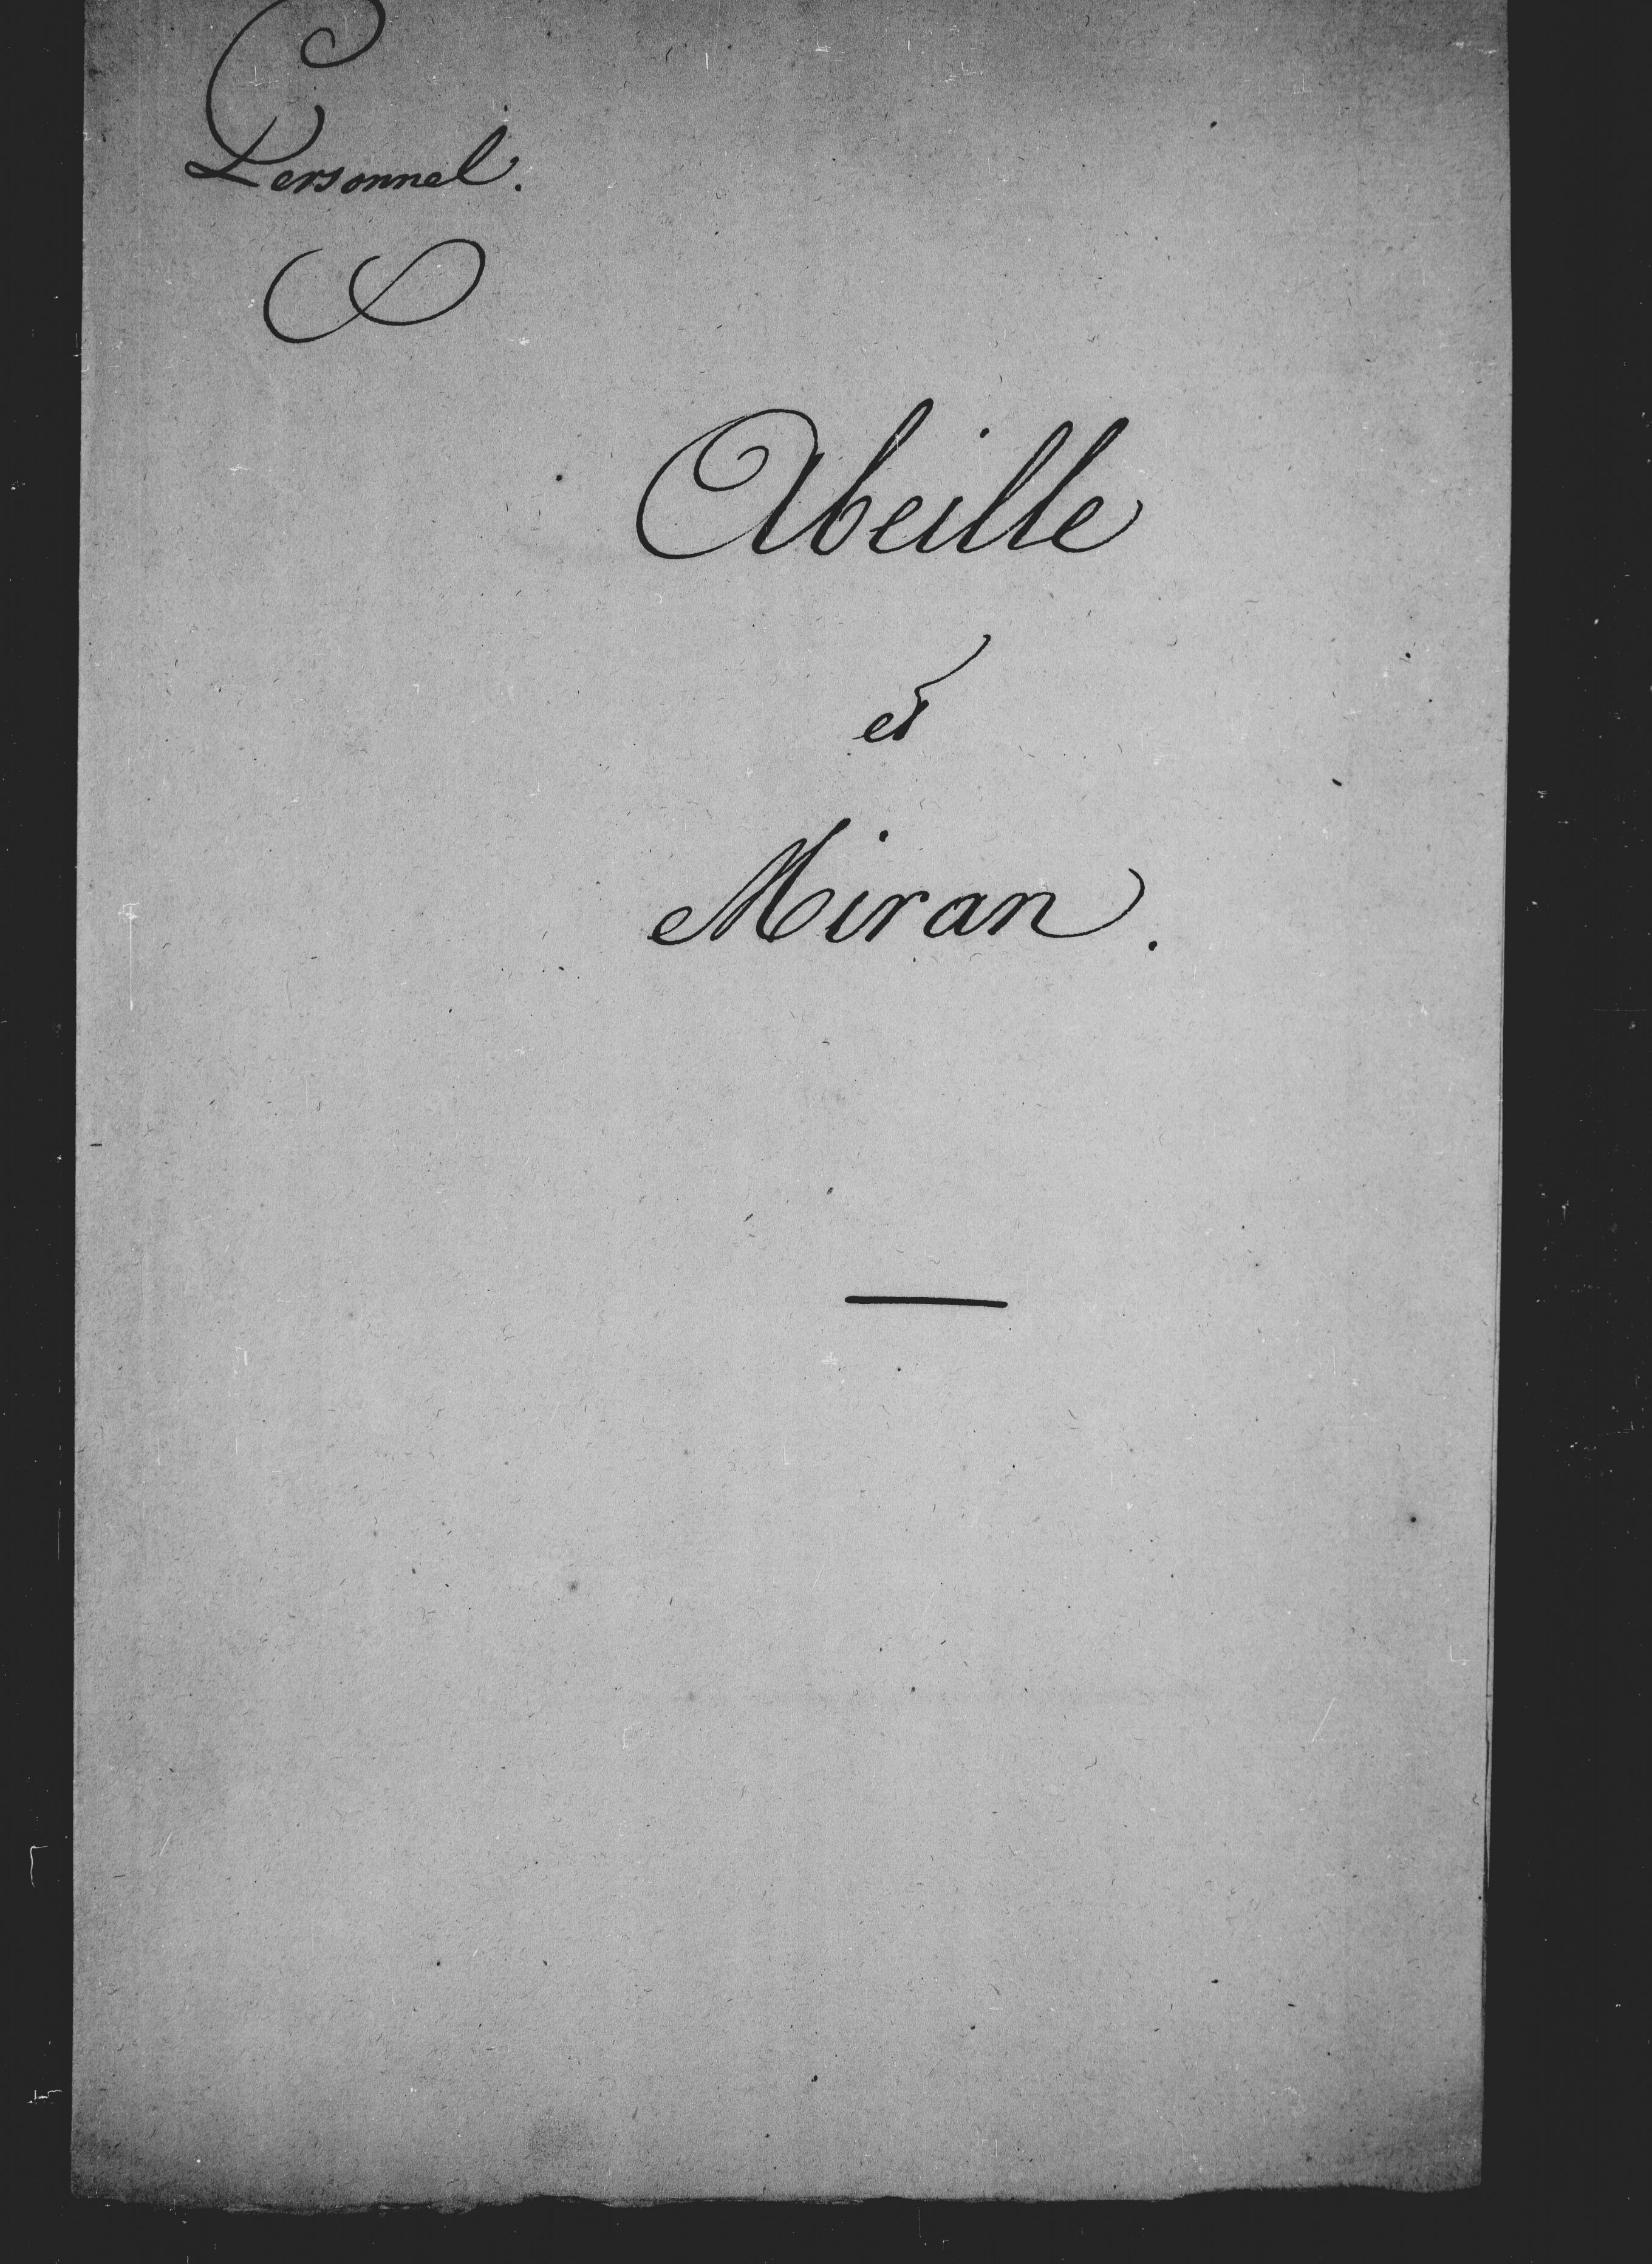 Personnel.
Abeille
et
Miran.